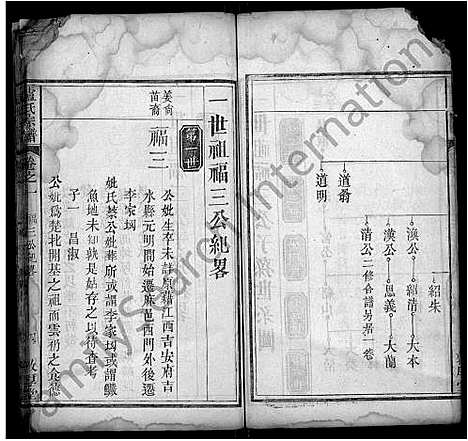 道翁
道明
紹朱
漢公
紹清
大本
漢公
恩義
大蘭
清公二修合譜另居一卷
一世祖福三公紀畧
第一世
姜裔
苗裔
福三
公妣生卒未詳原籍江西吉安府吉
水縣元明間始遷麻邑西門外後遷
李家坳
妣氏葬公妣葬所或謂李家坳或謂
魚地未知孰是姑存之以待查考
子一 昌淑
公妣爲楚北開基之祖而雲礽之食德
氏宗譜
卷之一
福三公紀畧
FamilySearch International